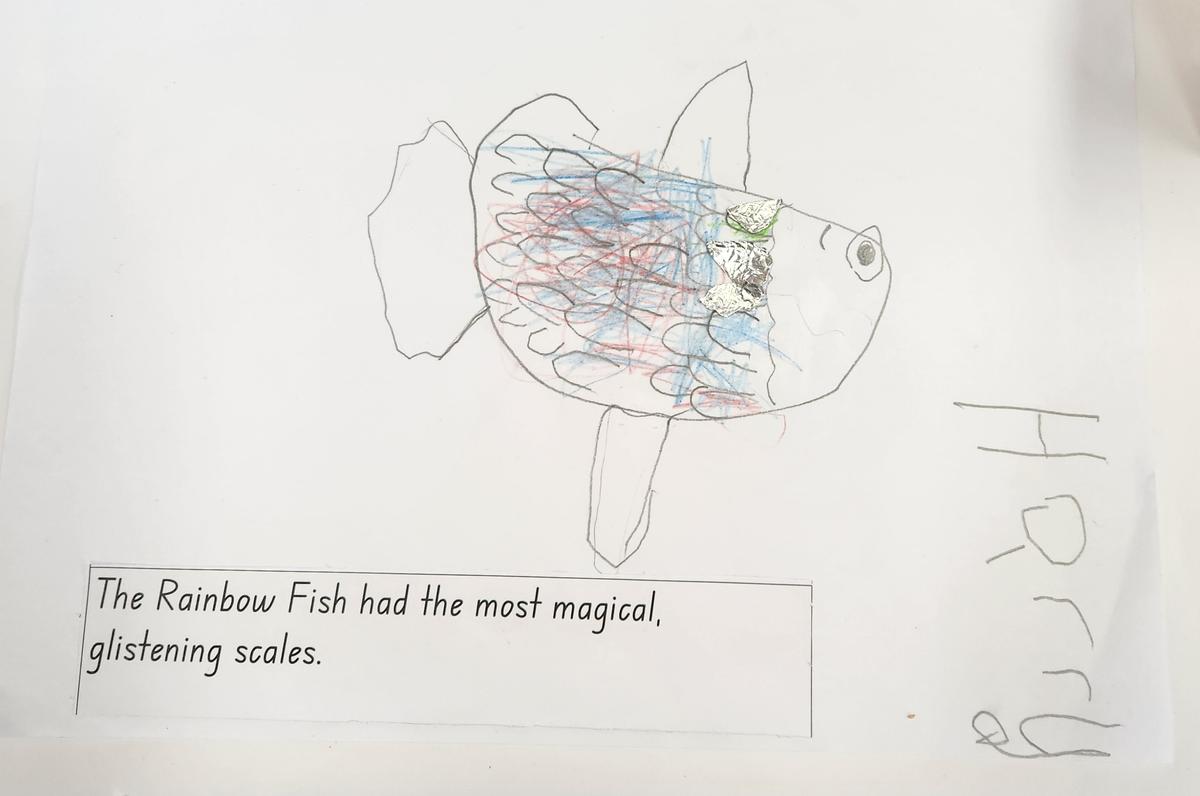 The Rainbow Fish had the most magical,
glistening scales.
Harry